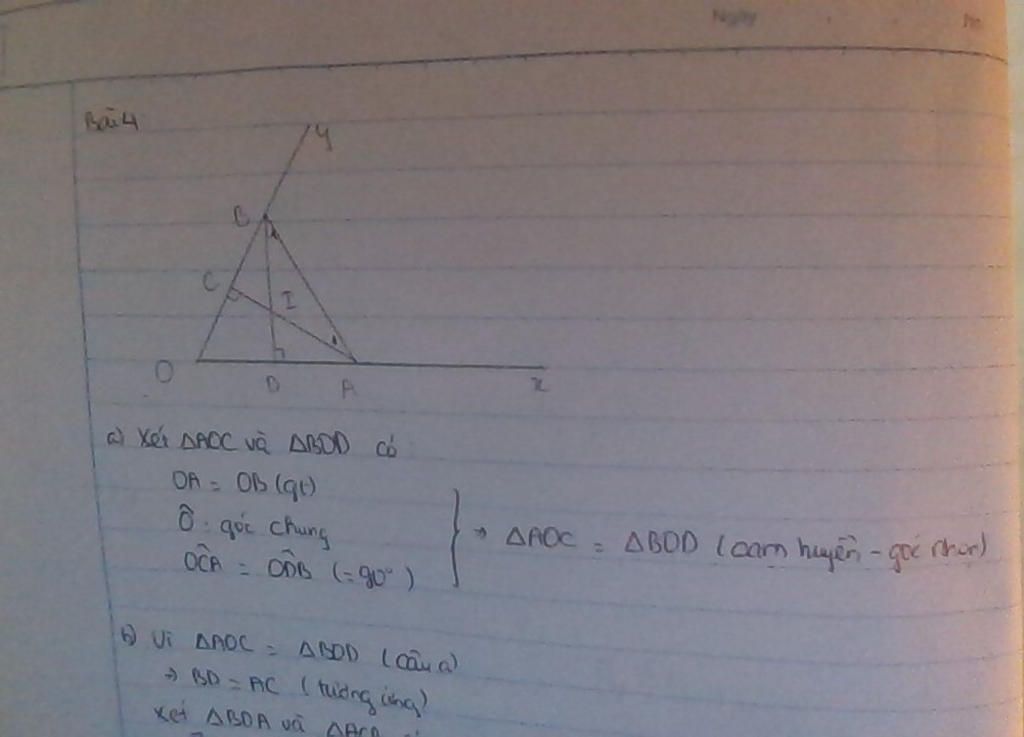 Ngày
Bài 4
y
B
C
I
O
D
A
x
a) Xét ΔAOC và ΔBOD có
OA = OB (gt)
Ô : góc chung
OĈA = OD̂B (= 90°)
} → ΔAOC = ΔBOD (cạnh huyền - góc nhọn)
b) Vì ΔAOC = ΔBOD (câu a)
→ BD = AC (tương ứng)
Xét ΔBDA và